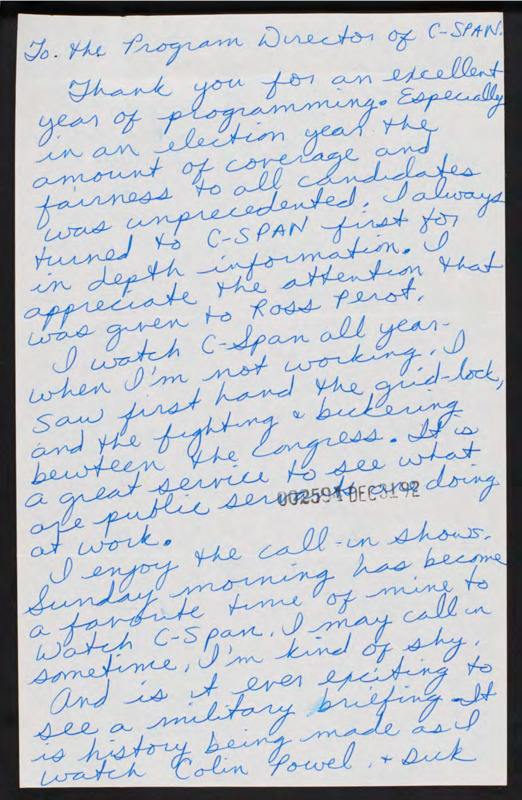 To. the Program Director of C-SPAN.
Thank you for an excellent
year of programming. Especially
in an election year the
amount of coverage and
fairness to all candidates
was unprecedented. I always
turned to C-SPAN first for
in depth information. I
appreciate the attention that
was given to Ross Perot.
I watch C-Span all year-
when I'm not working. I
saw first hand the grid-lock,
and the fighting & bickering
bewteen the Congress. It is
a great service to see what
are public servants are doing
002591 DEC 31 92
at work.
I enjoy the call-in shows.
Sunday morning has become
a favorite time of mine to
watch C-Span. I may call in
sometime, I'm kind of shy.
And is it ever exciting to
see a military briefing. It
is history being made as I
watch Colin Powel, & Dick